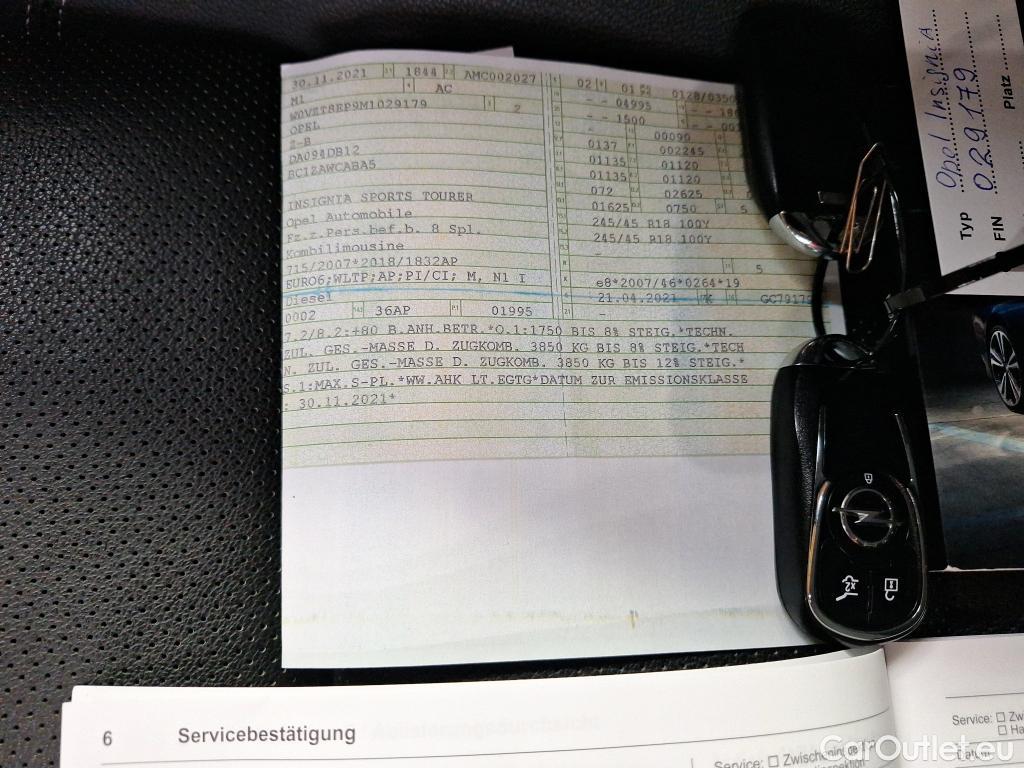 30.11.2021 1844 AMC002027
M1 AC
W0VZT8EP9M1029179 2
OPEL
Z-B
DA094DB12
BC1ZAWCABA5
INSIGNIA SPORTS TOURER
Opel Automobile
Fz.z.Pers.bef.b. 8 Spl.
Kombilimousine
715/2007*2018/1832AP
EURO6;WLTP;AP;PI/CI; M, N1 I
Diesel
0002 36AP 01995
02 01 0128/0350
- - 04995
- - 1500
- 00090
0137 002245
01135 01120
01135 01120
072 02625
01625 0750 5
245/45 R18 100Y
245/45 R18 100Y
-
5
e8*2007/46*0264*19
21.04.2021 K GC79179
-
7.2/8.2:+80 B.ANH.BETR.*O.1:1750 BIS 8% STEIG.*TECHN.
ZUL. GES.-MASSE D. ZUGKOMB. 3850 KG BIS 8% STEIG.*TECH
N. ZUL. GES.-MASSE D. ZUGKOMB. 3850 KG BIS 12% STEIG.*
S.1:MAX.S-PL.*WW.AHK LT.EGTG*DATUM ZUR EMISSIONSKLASSE
: 30.11.2021*
Typ Opel Insignia
FIN 029179
Platz
x2
6 Servicebestätigung
Service: Zwischeninspektion
Service: Zwi
Ha
Datum
CarOutlet.eu